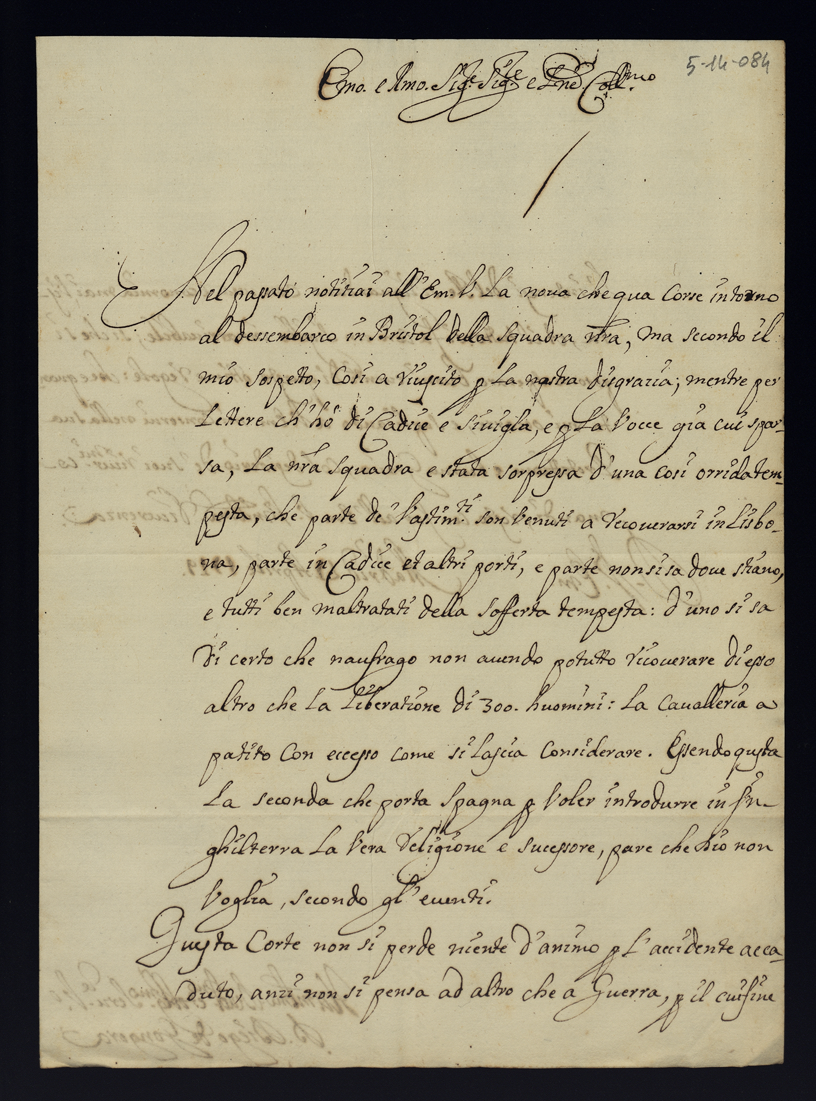 5-14-084
Emo. e Rmo. Sigre. Sigre. e Pne Collmo.
Nel passato notitiai all'Em. V. La nova che qua corse intorno
al dessembarco in Bristol della squadra nra, ma secondo il
mio sospetto, Cosi a riuscito p La nostra disgracia; mentre per
Lettere ch'hò di Cadice e Siviglia, e p La Vocce gia cui spar-
sa, La nra squadra e stata sorpressa d'una cosi orrida tem-
pesta, che parte de' Vastim.ti son Venuti a ricoverarsi in Lisbo-
na, parte in Cadice et altri porti, e parte non si sa dove stiano,
e tutti ben maltratati della sofferta tempesta: d'uno si sa
di certo che naufrago non avendo potutto ricoverare di esso
altro che La liberatione di 300. huomini: La Cavalleria a
patito Con eccesso come si lascia Considerare. Essendo questa
La seconda che porta Spagna p Voler introdurre in In-
ghilterra La Vera Religione e sucessore, pare che Dio non
Voglia, secondo gl'eventi.
Questa Corte non si perde niente d'animo p L'accidente acca-
duto, anzi non si pensa ad altro che a Guerra, p il cui fine